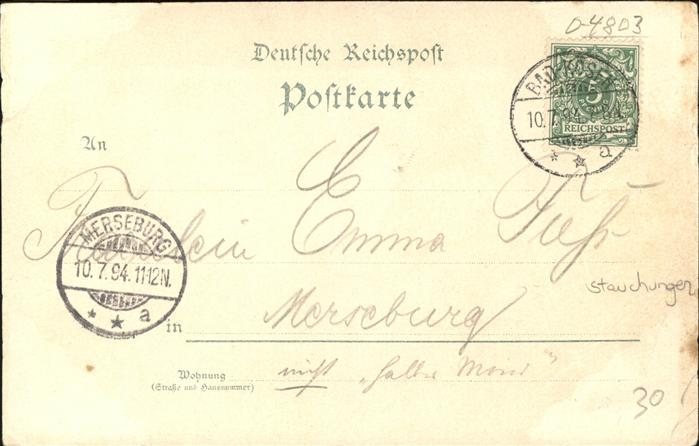 D-4803
Deutsche Reichspost
Postkarte
BAD KÖSEN
10.7.94. 8-9A.
a
5
REICHSPOST
An
Fräulein Emma
MERSEBURG
10.7.94. 11-12N.
a
stauchungen
in Merseburg
Wohnung
(Straße und Hausnummer)
"halber Mond"
30